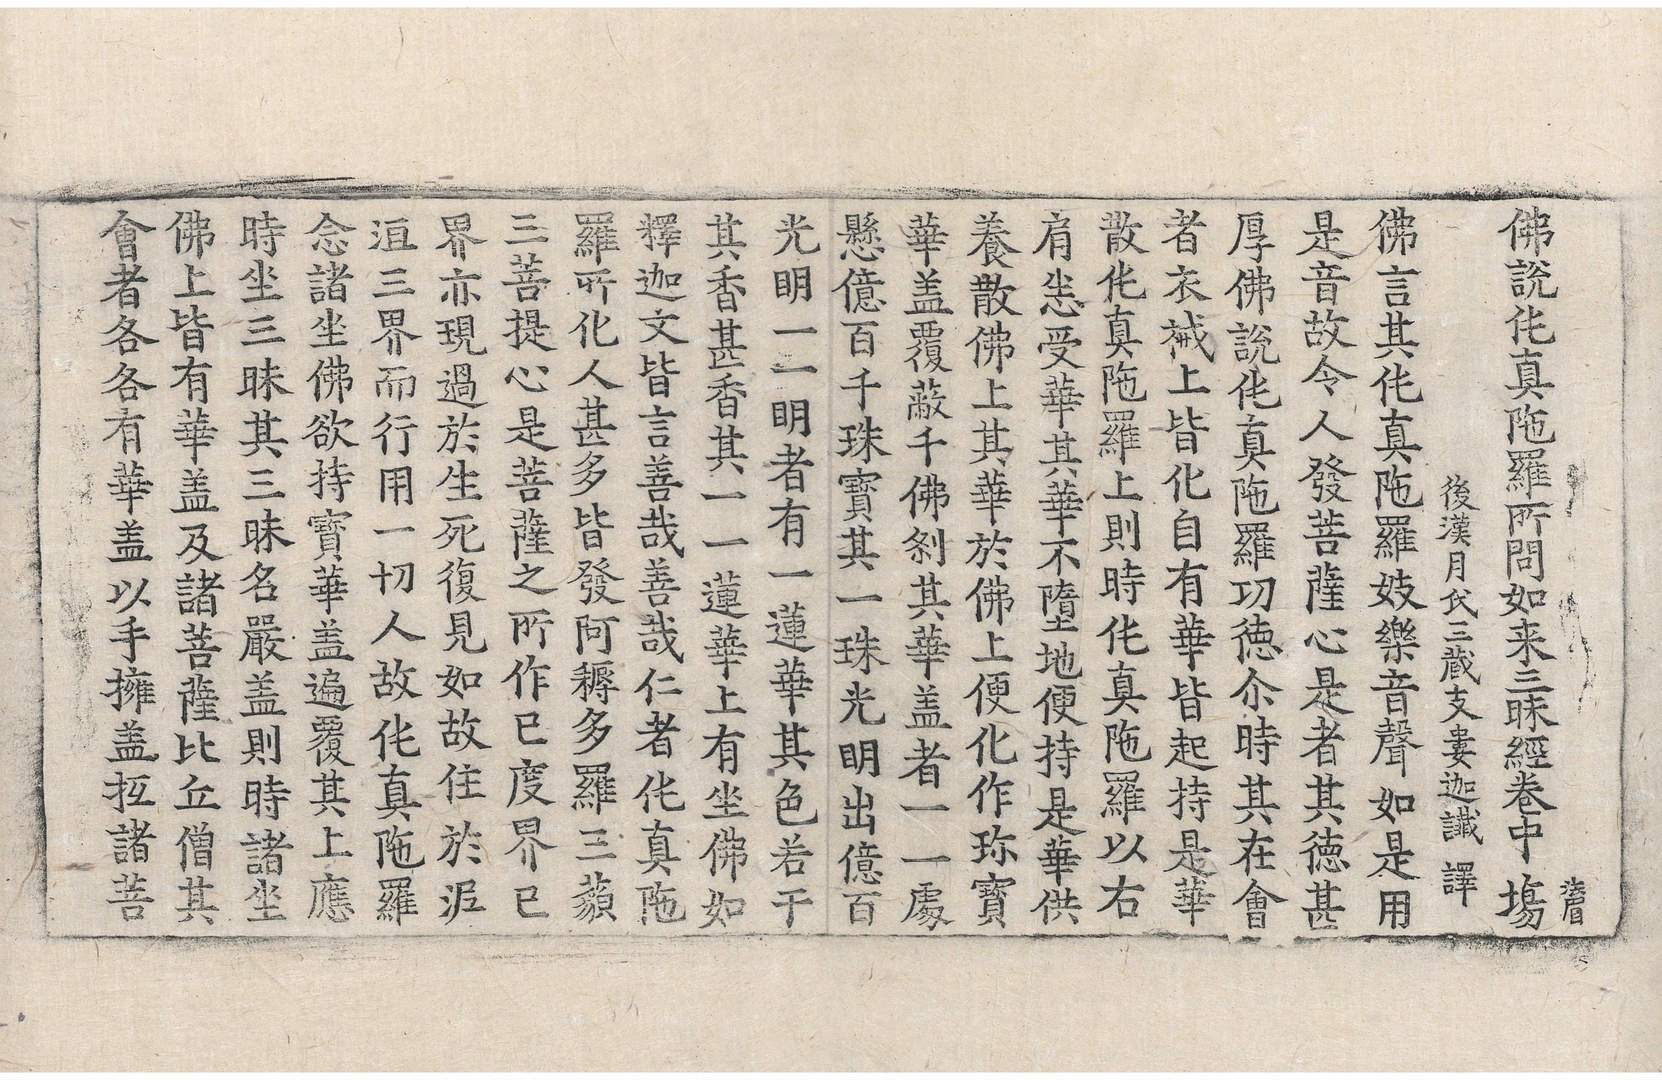 佛說伅真陁羅所問如来三昧經卷中 塲
後漢月氏三藏支婁迦讖 譯
佛言其伅真陁羅妓樂音聲如是用
是音故令人發菩薩心是者其德甚
厚佛說伅真陁羅功德尒時其在會
者衣裓上皆化自有華皆起持是華
散伅真陁羅上則時伅真陁羅以右
肩悉受華其華不墮地便持是華供
養散佛上其華於佛上便化作珎寶
華盖覆蔽千佛剎其華盖者一一處
懸億百千珠寶其一珠光明出億百
光明一一明者有一蓮華其色若干
其香甚香其一一蓮華上有坐佛如
釋迦文皆言善哉善哉仁者伅真陁
羅所化人甚多皆發阿耨多羅三藐
三菩提心是菩薩之所作已度界已
界亦現過於生死復見如故住於泥
洹三界而行用一切人故伅真陁羅
念諸坐佛欲持寶華盖遍覆其上應
時坐三昧其三昧名嚴盖則時諸坐
佛上皆有華盖及諸菩薩比丘僧其
會者各各有華盖以手擁盖抂諸菩